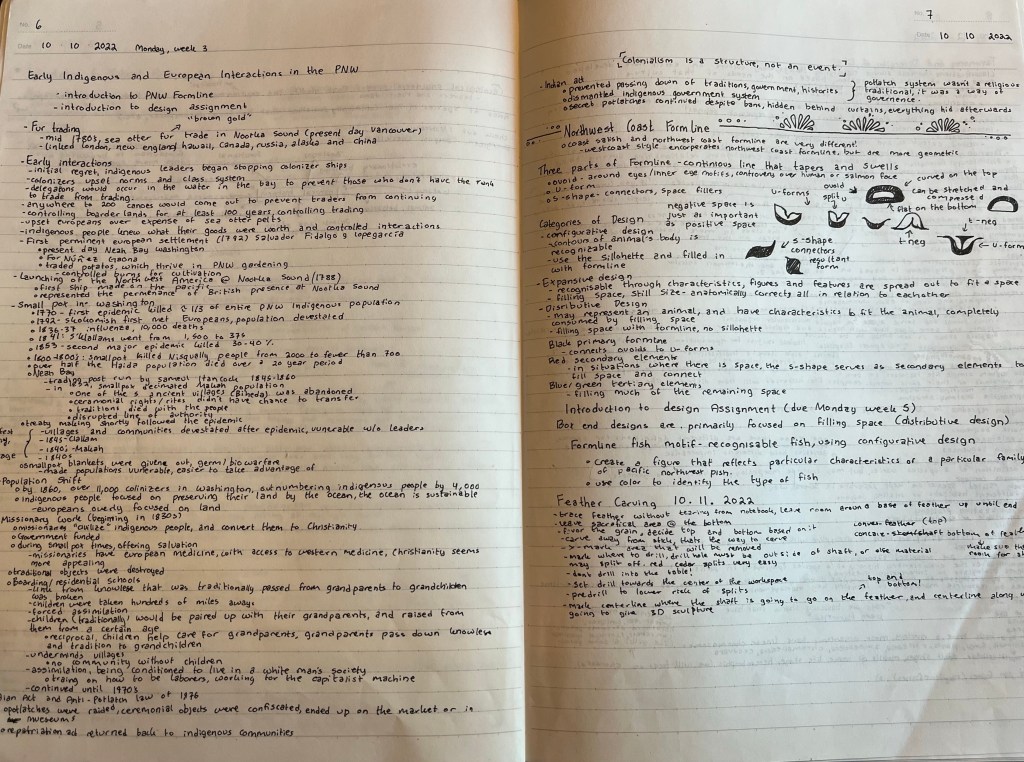 No. 6
Date 10 · 10 · 2022 Monday, week 3
Early Indigenous and European Interactions in the PNW
- introduction to PNW Formline
- introduction to design assignment
"brown gold"
- Fur trading
- mid 1780s, sea otter fur trade in Nootka sound (present day Vancouver)
- linked london, new england, hawaii, Canada, russia, alaska and china
- Early interactions
- initial regret, indigenous leaders began stopping colonizer ships
- colonizers upset norms and class system
- delegations, would occur in the water in the bay to prevent those who don't have the rank
to trade from trading.
- anywhere to 200 canoes would come out to prevent traders from continuing
- controlling boarder lands for at least 100 years, controlling trading
- upset europeans over expertise of sea otter pelts
- indigenous people knew what their goods were worth and controlled interactions
- First perminent european settlement (1792) Salvador Fidalgo y lopegarcía
• present day Neah Bay Washington
• for Núñez Gaona
• traded potatos, which thrive in PNW gardening
- controlled burns for cultivation
- Launching of the North West America @ Nootka Sound (1788)
• first ship made on the pacific
• represented the permenance of British presence at Nootka sound
- Small pox in washington
• 1770 - first epidemic killed 1/3 of entire PNW indigenous population
• 1792 - skokomish first met Europeans, population devestated
• 1836-37 influenza, 10,000 deaths
• 1841: S'klallams went from 1,500 to 375
• 1853 - second major epidemic killed 30-40%
• 1800-1850s: smallpot killed Nisqually people from 2000 to fewer than 700
• over half the Haida population died over a 20 year period
• Neah Bay
- trading post run by samuel Hancock 1845-1860
- in 1852, smallpox decimated Makah population
• one of the 5 ancient villages (Biheda) was abandoned
• ceremonial rights/rites didn't have chance to transfer
• traditions died with the people
• disrupted line of authority
• treaty making shortly followed the epidemic
- villages and communities devestated after epidemic, vunerable w/o leaders
- 1845 - Clallam
- 1840s - Makah
- 1840s
• smallpox blankets were given out, germ/bio warfare
- made populations vunerable, easier to take advantage of
Population Shift
• by 1860, over 11,000 colinizers in washington, outnumbering indigenous people by 4,000
• indigenous people focused on preserving their land by the ocean, the ocean is sustainable
- europeans overly focused on land
Missionary Work (beginning in 1830s)
• missionaries "civilize" indigenous people, and convert them to Christianity
• Government funded
• during small pot times, offering salvation
- missionaries have European medicine, with access to western medicine, Christianity seems
more appealing
• traditional objects were destroyed
• boarding/residential schools
- link from knowlege that was traditionally passed from grandparents to grandchildren
was broken
- children were taken hundreds of miles away
- forced assimilation
- children (traditionally) would be paired up with their grandparents, and raised from
them from a certain age
• reciprocal, children help care for grandparents, grandparents pass down knowlege
and tradition to grandchildren
- underminds villages
• no community without children
- assimilation, being conditioned to live in a white man's society
• traing on how to be laborers, working for the capitalist machine
- continued until 1970s
ian Act and Anti-Potlatch law of 1876
• potlatches were raided, ceremonial objects were confiscated, ended up on the market or in
museums
• repatriation act returned back to indigenous communities
No. 7
Date 10 10 2022
[Colonialism is a structure, not an event.]
- Indian act
• prevented passing down of traditions, government, histories
• dismantled indigenous government system
• secret potlatches continued despite bans, hidden behind curtains, everything hid afterwards
potlatch system wasn't a religious
traditional, it was a way of
governence.
Northwest Coast Formline
• coast salish and northwest coast formline are very different!
- westcoast style - encorperates northwest coast formline, but are more geometric
Three parts of Formline - continous line that tapers and swells
• ovoid - around eyes/inner eye motifs, controversy over human or salmon face
• U-form
• S-shape - connectors, space fillers
negative space is
just as important
as positive space
U-forms
ovoid
split U
curved on the top
can be stretched and
compressed
flat on the bottom
t-neg
t-neg
U-form
Categories of Design
- configurative design
- contours of animal's body is
recognizable
- use the sillohette and filled in
with formline
S-shape
connectors
resultant
form
- Expansive design
- recognisable through characteristics, figures and features are spread out to fit a space
- filling space, still size-anatomically corrects all in relation to eachother
- Disributive Design
- may represent an animal, and have characteristics to fit the animal, completely
consumed by filling space
- filling space with formline, no sillohette
Black primary formline
- connects ovoids to U-forms
Red secondary elements
- in situations where there is space, the S-shape serves as secondary elements to
fill space and connect
Blue/green tertiary elements
- filling much of the remaining space
Introduction to design Assignment (due Monday week 5)
Box end designs are primarily focused on filling space (distributive design)
Formline fish motif - recognisable fish, using configurative design
• create a figure that reflects particular characteristics of a particular family
of pacific northwest fish.
• use color to identify the type of fish
Feather Carving 10.11.2022
- trace feather without tearing from notebook, leave room around base of feather up until end
- leave sacrafical area @ the bottom
- favor the grain, decide top and bottom based on it
- carve away from pith, thats the way to carve
- X-mark area that will be removed
- mark where to drill, drill hole must be outside of shaft, or else material
may split off. red cedar splits very easy
- dont drill into the table!
- set drill towards the center of the workspace
- predrill to lower risk of splits
- mark centerline where the shaft is going to go on the feather, and centerline along
going to give 3D sculpture
convex feather (top)
concave shaft bottom of
make sure
room for
top and
bottom!